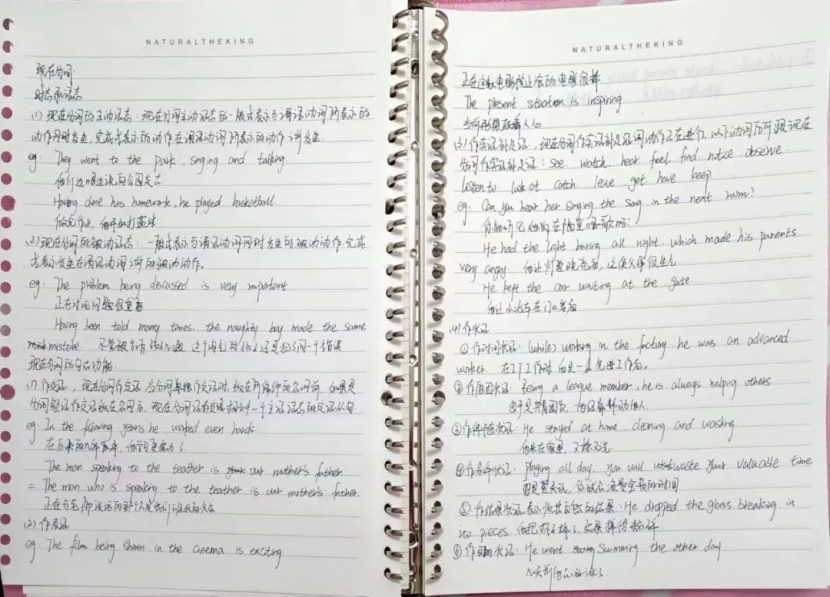 NATURALTHEKING
现在分词
时态和语态
(1) 现在分词的主动语态:现在分词主动语态的一般式表示与谓语动词所表示的
动作同时发生,完成式表示的动作在谓语动词所表示的动作之前发生.
eg. They went to the park, singing and talking.
他们边唱边说向公园走去
Having done his homework, he played basketball.
做完作业,他开始打篮球
(2) 现在分词的被动语态:一般式表示与谓语动词同时发生的被动动作,完成
式表示发生在谓语动词之前的被动动作。
eg: The problem being discussed is very important
正在讨论的问题很重要
Having been told many times, the naughty boy made the same
mistake
现在分词的句法功能
(1) 作定语,现在分词作定语,当分词单独作定语时,放在所修饰的名词前,如果是
分词短语作定语放在名词后,现在分词作定语相当于一个主动语态的定语从句
eg: In the following years he worked even harder.
在后来的几年中,他学习更努力了
The man speaking to the teacher is our mother's father
= The man who is speaking to the teacher is our mother's father.
正在与老师谈话的那个人是我们
(2) 作表语
eg: The film being shown in the cinema is exciting
NATURALTHEKING
正在这家电影院上演的电影很棒
The present situation is inspiring
当前形势鼓舞人心
(3) 作宾语补足语,现在分词作宾语补足语,动作正在进行,以下动词后可跟现在
分词作宾语补足语:see watch hear feel find notice observe
listen to look at catch leave get have keep
eg: Can you hear her singing the song in the next room?
你能听见她在隔壁唱歌吗?
He had the light burning all night which made his parents
very angry
He kept the car waiting at the gate.
他让小汽车在门口等着
(4) 作状语
① 作时间状语:(while) working in the factory, he was an advanced
worker. 在工厂工作时,他是一名先进工作者。
② 作原因状语:Being a league member, he is always helping others
由于是共青团员,他经常帮助他人.
③ He stayed at home, cleaning and washing
他呆在家里,
④ 作条件状语:Playing all day, you will waste your valuable time
⑤ 作结果状语,He dropped the glass breaking in
to pieces
⑥ 作目的状语:He went swimming the other day
几天前他